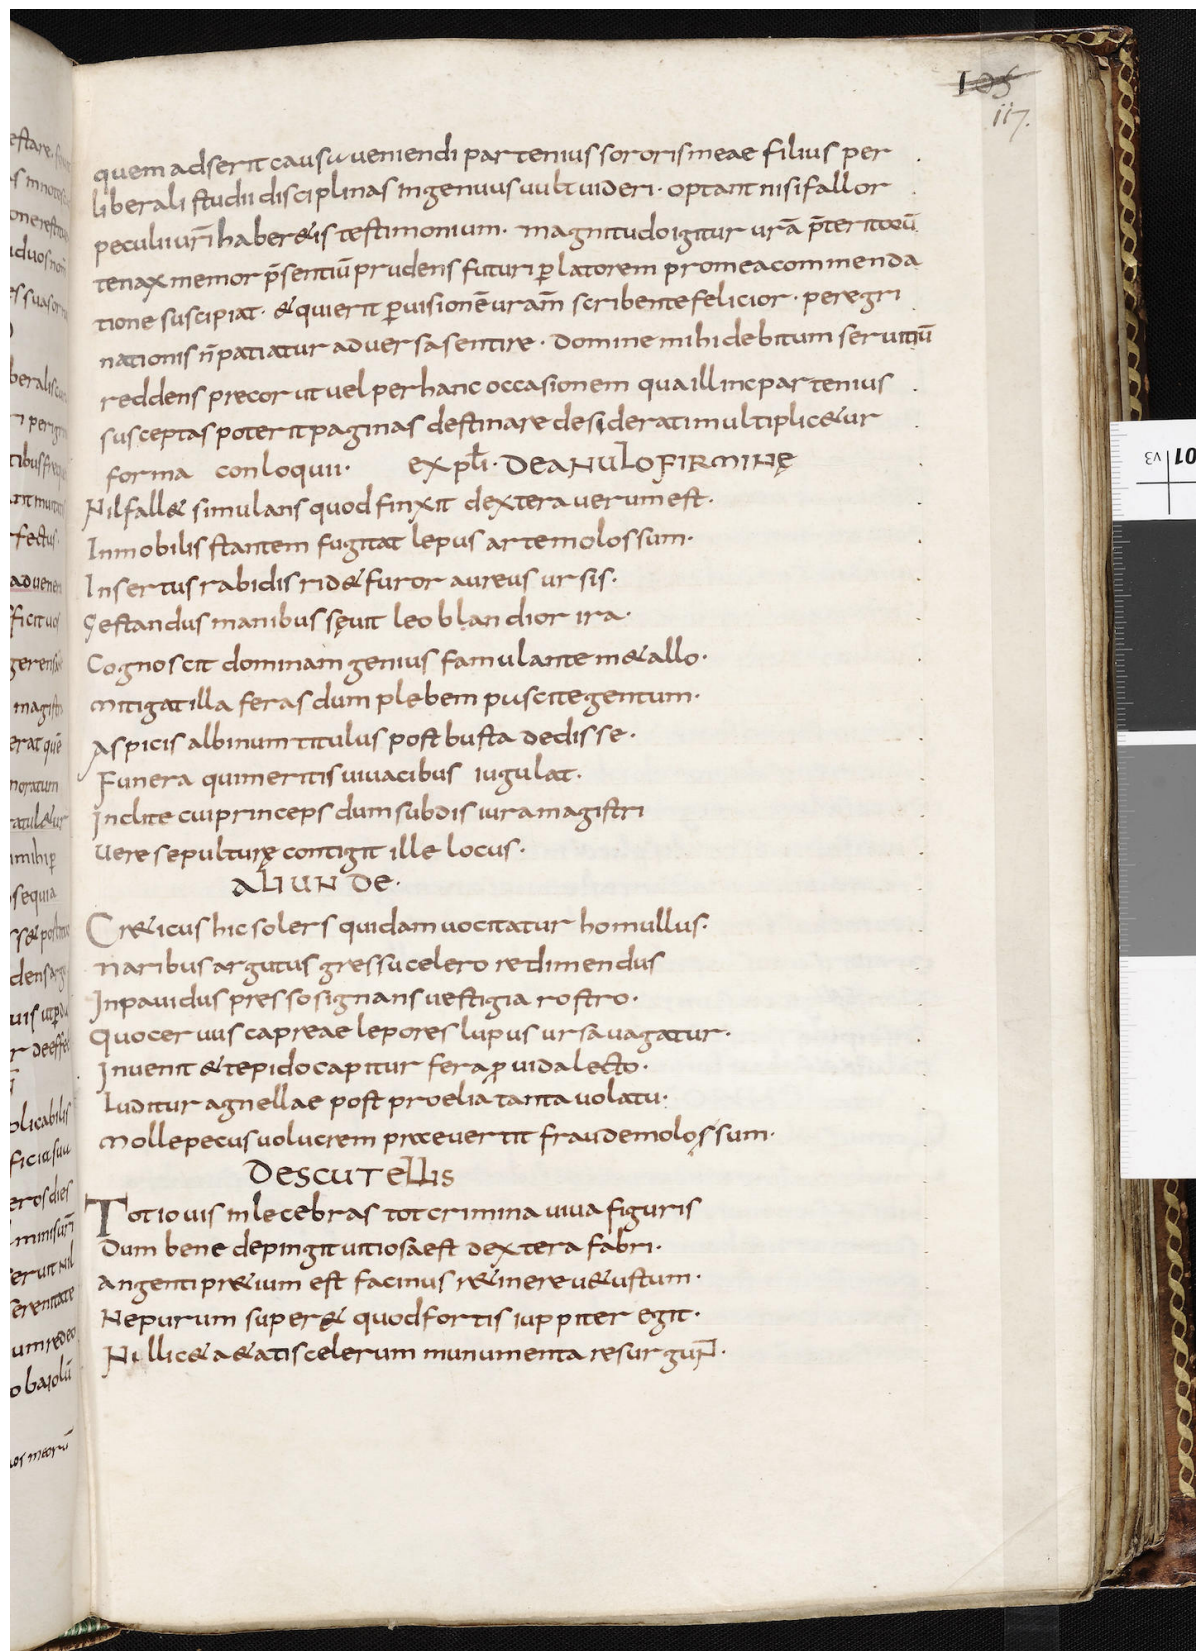 105
117.
quem adserit causa ueniendi partenius sororis meae filius per
liberali studii disciplinas ingenuus uult uideri· optant nisi fallor
peculii urī haber& is testimonium· magnitudo igitur urā p̄teritorū
tenax memor p̄sentiū prudens futuri platorem pro mea commenda
tione suscipiat· & quierit p uisionē uram̄ scribente felicior· peregri
nationis n̄ patiatur aduersa sentire· Domine mihi debitum seruitiū
reddens precor ut uel per hanc occasionem qua illinc partenius
susceptas poterit paginas destinare desiderati multiplic&ur
forma conloquii· expl̄i· DE ANULO FIRMINĘ
Nil fall& simulans quod finxit dextera uerum est·
Inmobilis stantem fugitat lepus arte molossum·
Insertus rabidis rid& furor aureus ursis·
Gestandus manibus sęuit leo blandior ira·
Cognoscit dominam genius famulante m&allo·
Mitigat illa feras dum plebem puscit egentum·
Aspicis albinum titulus post busta dedisse·
Funera qui meritis uiuacibus iugulat·
Inclite cui princeps dum subdis iura magistri
Uere sepulturę contigit ille locus·
ALIUNDE·
Cr&icus hic solers quidam uocitatur homullus·
Naribus argutus gressu celero redimendus
Inpauidus presso signans uestigia rostro·
Quo ceruus capreae lepores lupus ursa uagatur·
Inuenit & tepido capitur fera puida lecto·
Luditur agnellae post proelia tanta uolatu·
Molle pecus uolucrem praeeuertit fraude molossum·
DE SCUTELLIS
Tot iouis inlecebras tot crimina uiua figuris
Dum bene depingit uitiosa est dextera fabri·
Angenti pr&ium est facinus r&inere u&ustum·
Ne purum super& quod fortis iuppiter egit·
Nil lic& a&atis celerum munumenta resurguN̄·